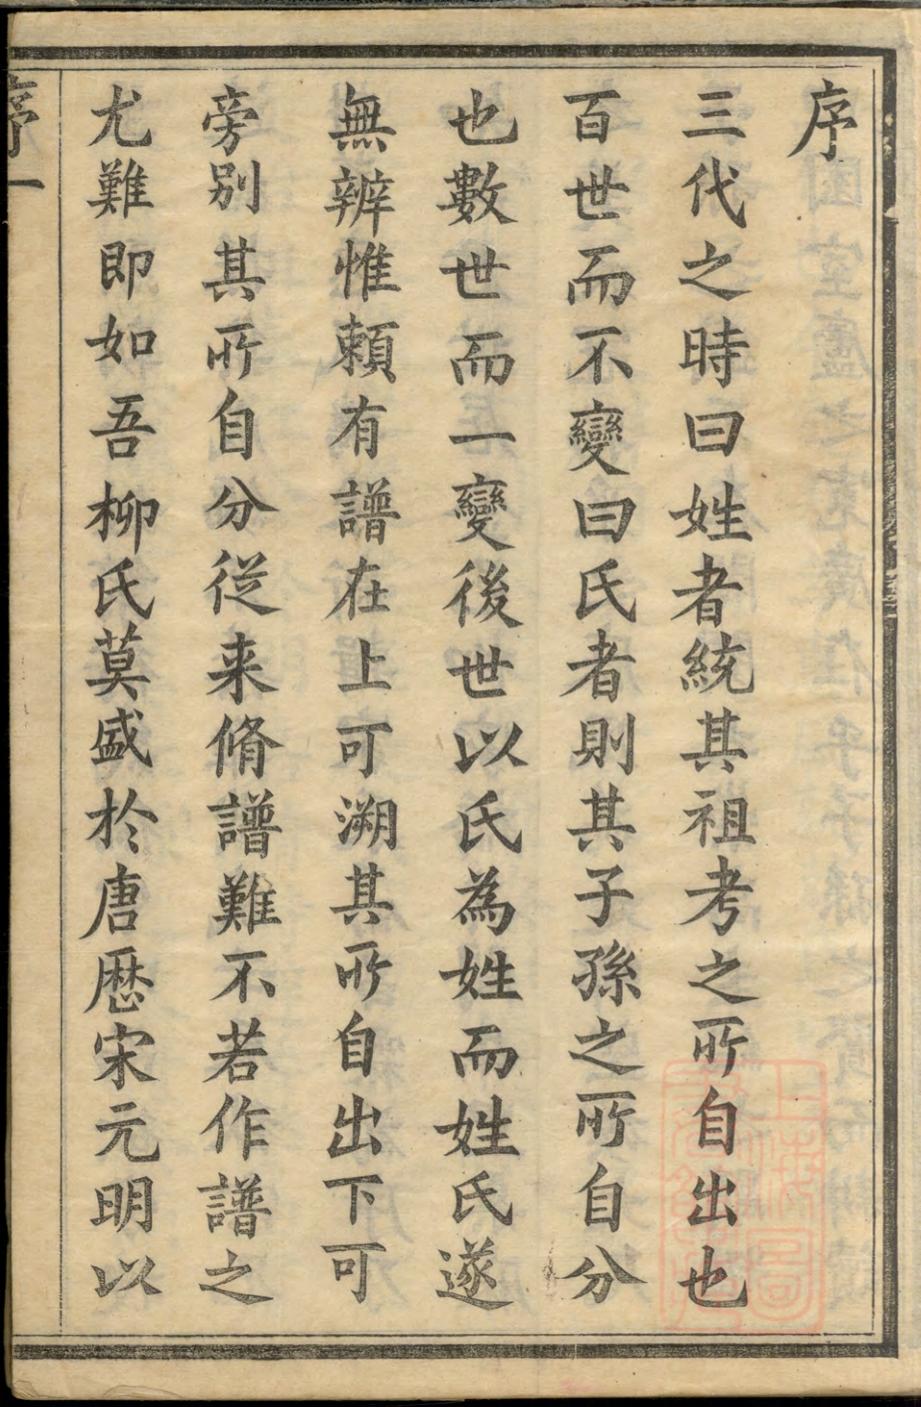 序
三代之時曰姓者統其祖考之所自出也
百世而不變曰氏者則其子孫之所自分
也數世而一變後世以氏為姓而姓氏遂
無辨惟賴有譜在上可溯其所自出下可
旁別其所自分從来脩譜難不若作譜之
尤難即如吾柳氏莫盛於唐歴宋元明以
序一